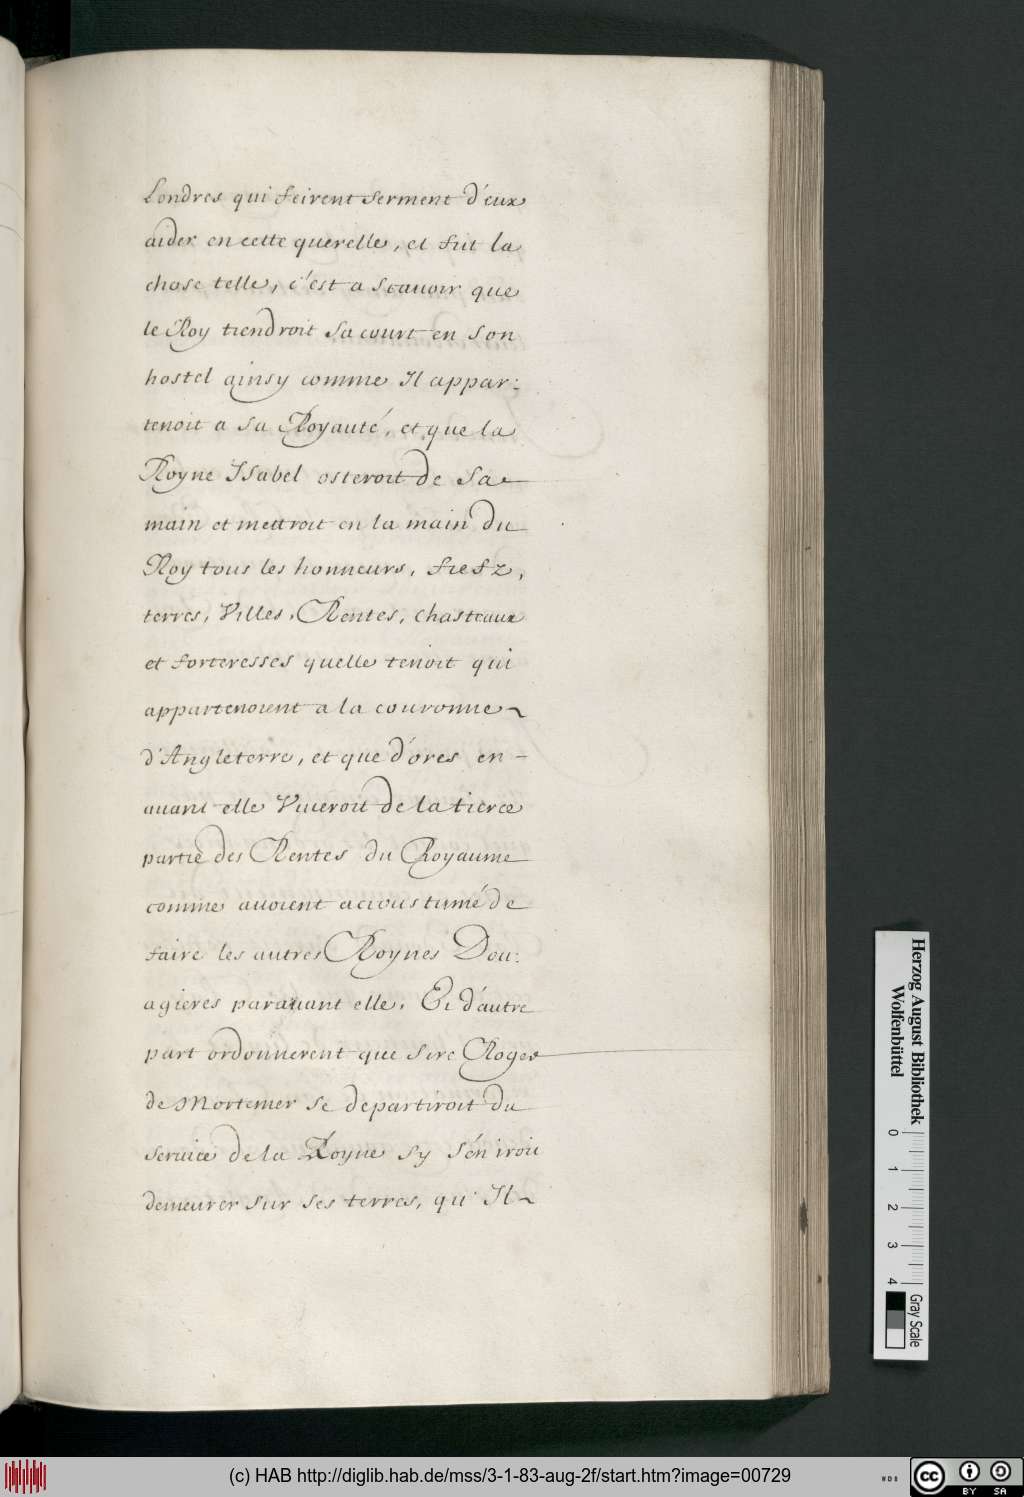 Londres qui feirent serment d'eux
aider en cette querelle, et fut la
chose telle, c'est a scauoir que
le Roy tiendroit sa court en son
hostel ainsy comme Il appar:
tenoit a sa Royauté, et que la
Royne Isabel osteroit de sa
main et mettroit en la main du
Roy tous les honneurs, fiefz,
terres, Villes, Rentes, chasteaux
et forteresses quelle tenoit qui
appartenoient a la couronne
d'Angleterre, et que d'ores en-
auant elle Viueroit de la tierce
partie des Rentes du Royaume
comme auoient accoustumé de
faire les autres Roynes Dou:
agieres parauant elle. Et d'autre
part ordonnerent que sire Roger
de Mortemer se departiroit du
seruice de la Royne sy s'én iroit
demeurer sur ses terres, qu'Il
Herzog August Bibliothek
Wolfenbüttel
0 1 2 3 4
Gray Scale
(c) HAB http://diglib.hab.de/mss/3-1-83-aug-2f/start.htm?image=00729
WDB
cc BY SA